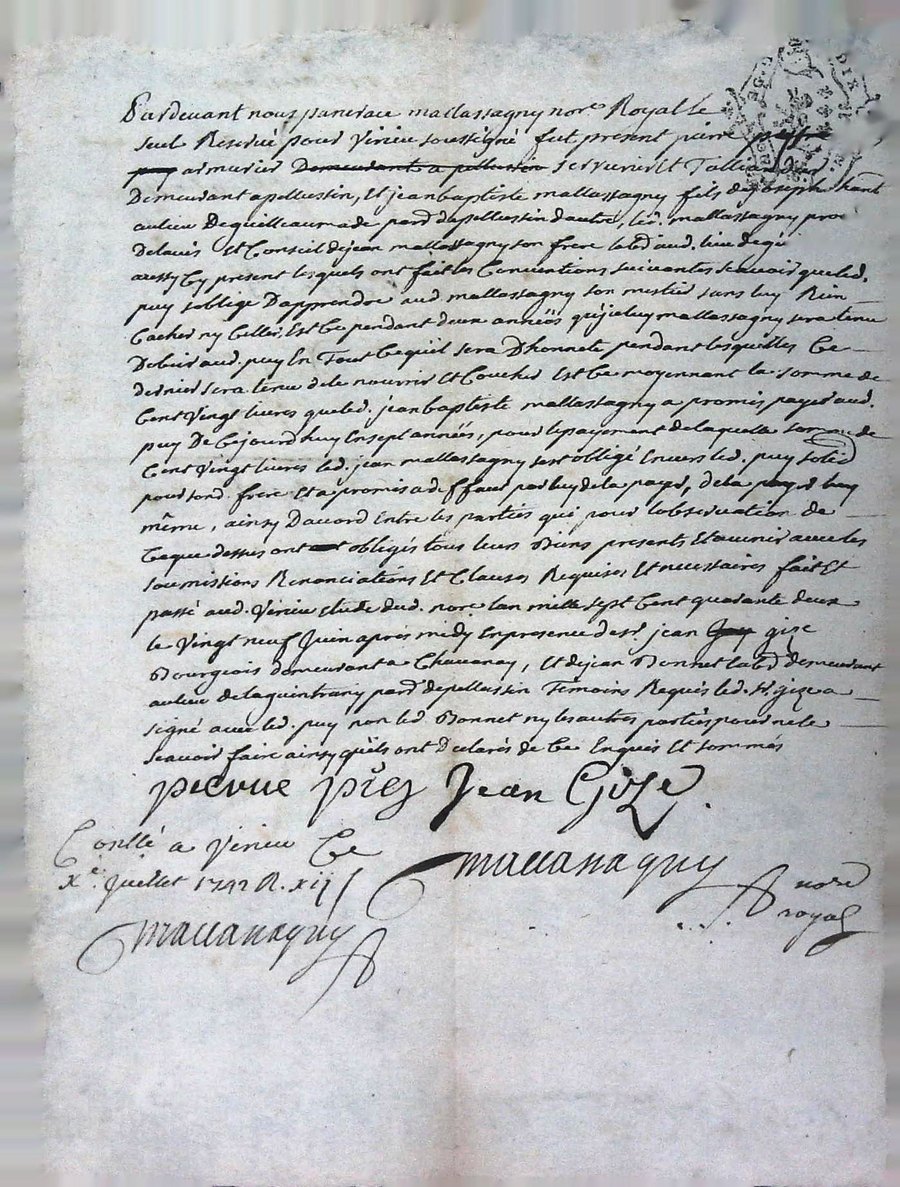 Pardevant nous pancrace mallassagny nore Royal Le
seul Reservé pour Virieu soussigné fut present pierre
armurier Demeurant a pellussin serrurier Et Tallian
Demeurant apellussin, Et jean baptiste mallassagny fils de joseph
aulieu Deguilleaumade parr d'apellussin dautre, led. mallassagny pro
Delavis Et Conseil dejean mallassagny son frere aud. lieu
aussy Cy present lesquels ont fait les Conventions suivantes scavoir queled.
puy soblige Dapprendre aud mallassagny son mestier sans luy Rien
Cacher ny Celler, Est Ce pendant deux années quiceluy mallassagny sera tenu
Dobeir aud. puy En Tout Cequil sera Dhonnete pendant lesquelles Ce
dernier sera tenu dele nourrir Et Coucher Est Ce moyennant la somme de
Cent Vingt livres queled. jean baptiste mallassagny a promis payer aud.
puy De Cejourdhuy Ensept années, pour lepayement delaquelle somme de
Cent Vingt livres led. jean mallassagny sest obligé Envers led. puy solid
pour sond. frere Et a promis adeffaut par luy dela payer, dela payer luy
même, ainsy Dacord Entre les parties qui pour lobservation de
Ceque dessus ont obligés tous leurs Biens presents Et avenir avec les
soumissions Renonciations Et Clauses Requises Et necessaires fait Et
passé aud. Virieu Etude dud. nore lan mille sept Cent quarante deux
le Vingt neuf Juin aprés midy Enpresence de sr. jean gize
Bourgeois demeurant a Chavanay, Et dejean Bonnet demeurant
aulieu de laquintrany parr depellussin Temoins Requis led. sr. gize a
signé avec led. puy non led Bonnet ny les autres parties pour ne le
scavoir faire ainsy quils ont Declarés de Ce Enquis Et sommés
pierre piey Jean Gize.
Conllé a Virieu Ce
Xe. Juillet 1742 R. xij s
mallassagny
nore
royal
mallassagny